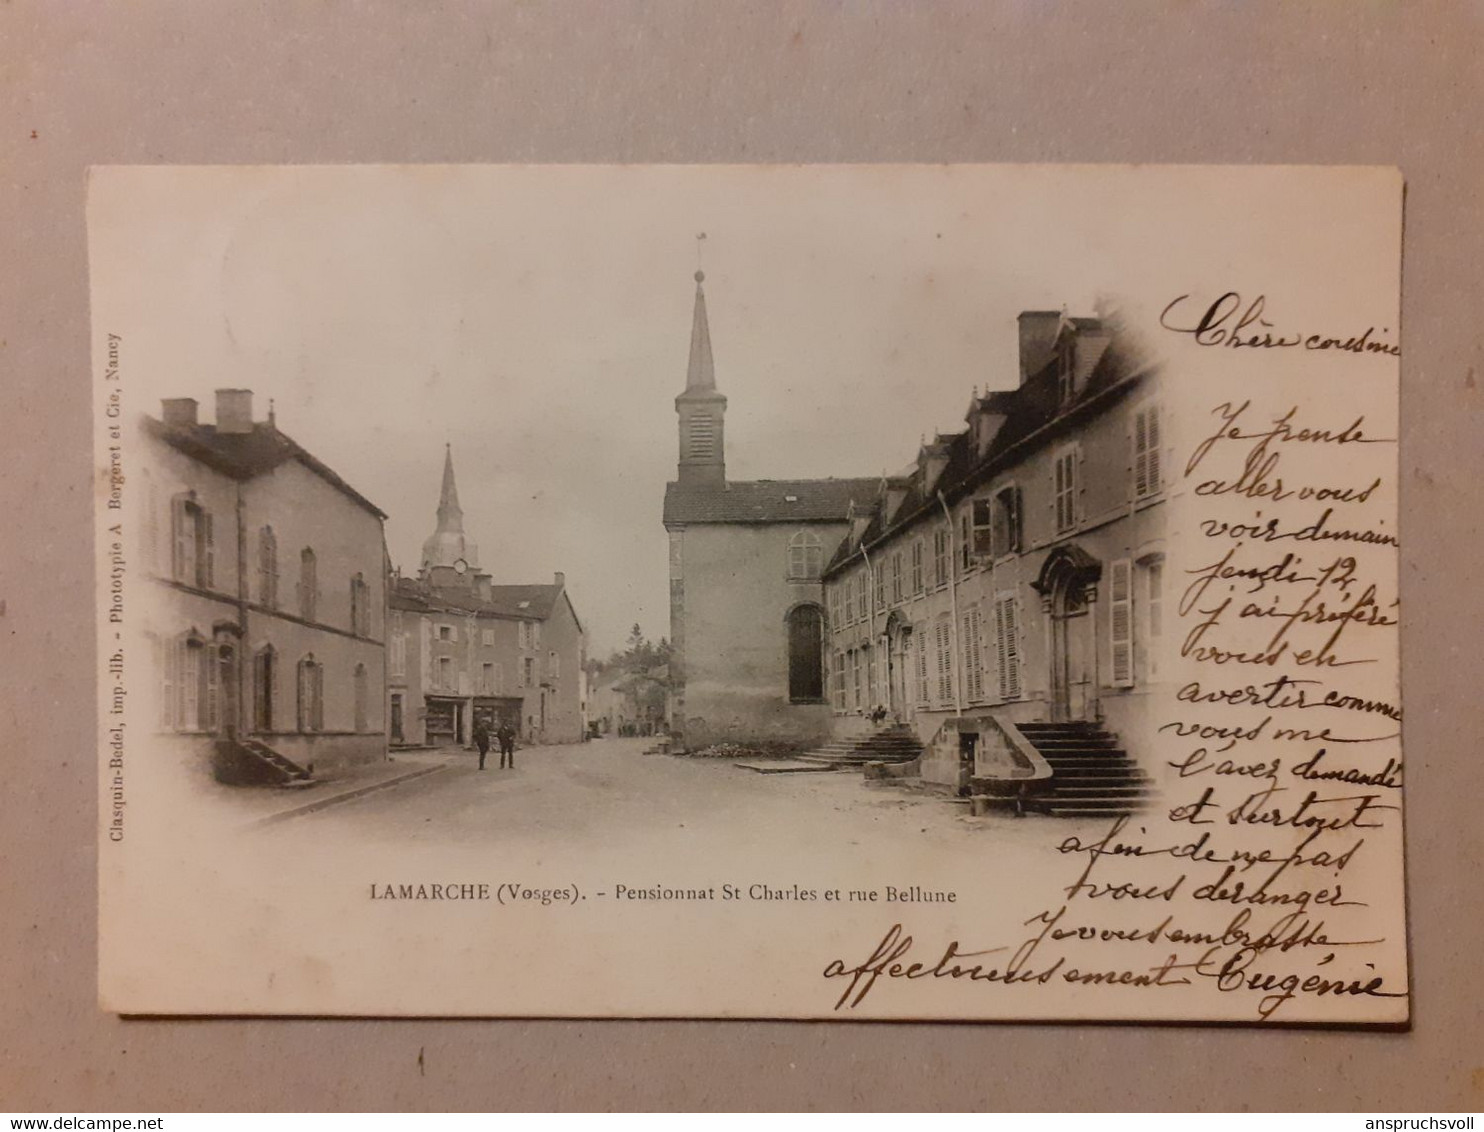 Clasquin-Bedel, imp.-lib. - Phototypie A Bergeret et Cie, Nancy
Chère cousine
Je pense
aller vous
voir demain
jeudi 12
j'ai préféré
vous en
avertir comme
vous me
l'avez demandé
et surtout
afin de ne pas
vous déranger
Je vous embrasse
affectueusement Eugénie
LAMARCHE (Vosges). - Pensionnat St Charles et rue Bellune
www.delcampe.net
anspruchsvoll